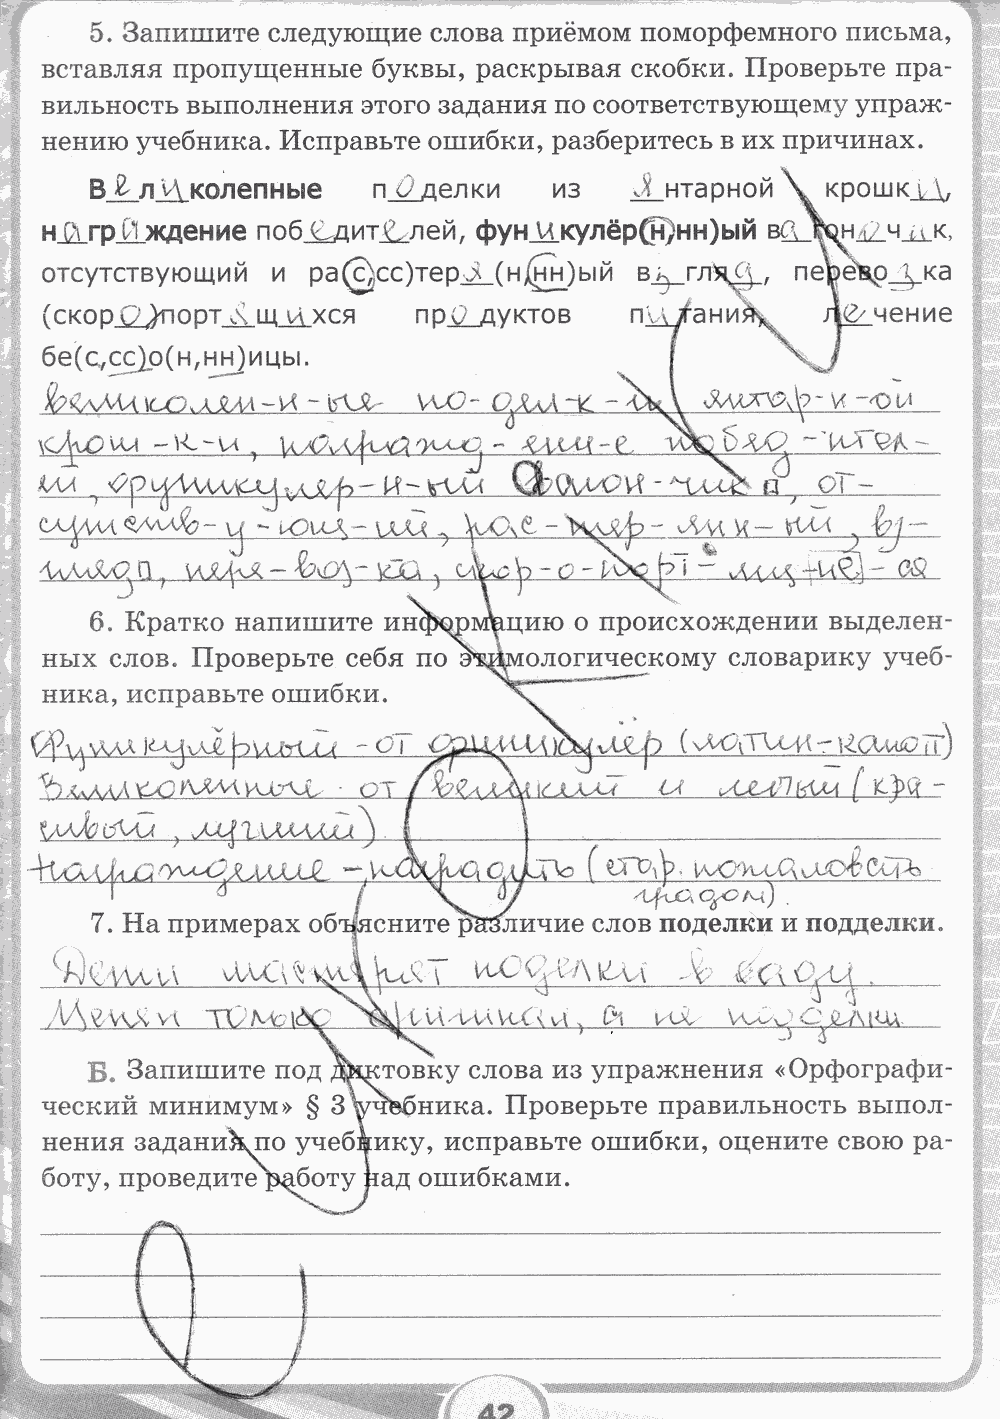 5. Запишите следующие слова приёмом поморфемного письма,
вставляя пропущенные буквы, раскрывая скобки. Проверьте пра-
вильность выполнения этого задания по соответствующему упраж-
нению учебника. Исправьте ошибки, разберитесь в их причинах.
Великолепные поделки из янтарной крошки,
награждение победителей, фуникулёр(н,нн)ый вагончик,
отсутствующий и ра(с,сс)теря(н,нн)ый взгляд, перевозка
(скоро)портящихся продуктов питания, лечение
бе(с,сс)о(н,нн)ицы.
великолеп-н-ые по-дел-к-и янтар-н-ой
крош-к-и, награжд-ени-е побед-ител-
ей, фуникулер-н-ый вагон-чик, от-
сутств-у-ющ-ий, рас-тер-янн-ый, вз-
гляд, пере-воз-ка, скор-о-порт-ящ-ие-ся
6. Кратко напишите информацию о происхождении выделен-
ных слов. Проверьте себя по этимологическому словарику учеб-
ника, исправьте ошибки.
Фуникулёрный - от фуникулёр (латин-канат)
Великолепные от великий и лепый (кра-
сивый, лучший)
Награждение - наградить (стар. пожаловать
градом).
7. На примерах объясните различие слов поделки и подделки.
Дети мастерят поделки в саду.
Ценен только оригинал, а не подделки
Б. Запишите под диктовку слова из упражнения «Орфографи-
ческий минимум» § 3 учебника. Проверьте правильность выпол-
нения задания по учебнику, исправьте ошибки, оцените свою ра-
боту, проведите работу над ошибками.
42